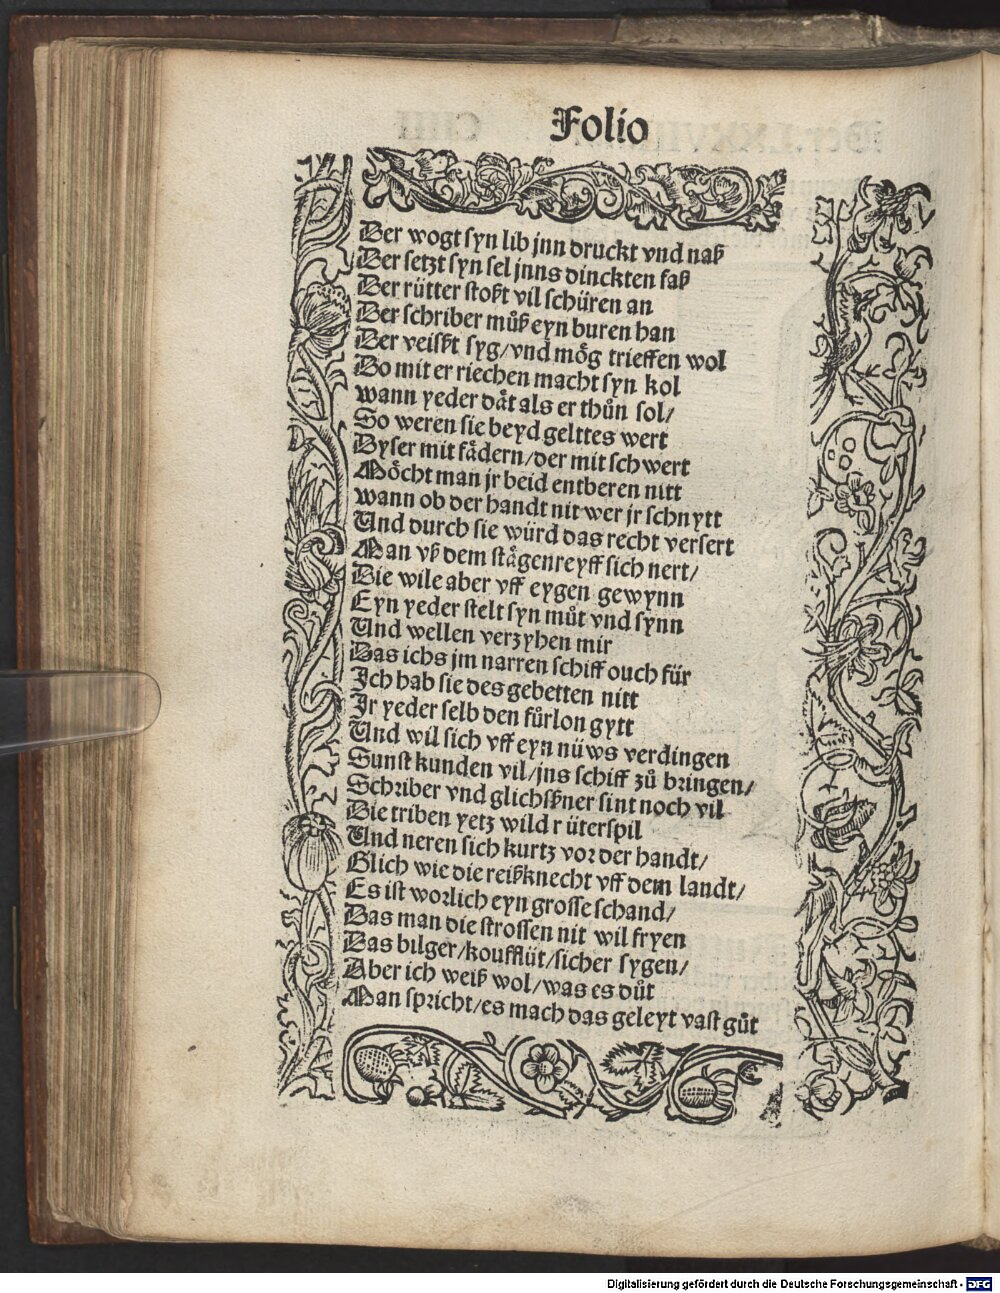 Folio
Der wogt syn lib jnn druckt vnd naß
Der setzt syn sel jnns dinckten faß
Der rütter stoßt vil schüren an
Der schriber můß eyn buren han
Der veißt syg/vnd mög trieffen wol
Do mit er riechen macht syn kol
wann yeder dät als er thůn sol/
So weren sie beyd gelttes wert
Dyser mit fädern/der mit schwert
Möcht man jr beid entberen nitt
wann ob der handt nit wer jr schnytt
Und durch sie würd das recht versert
Man vß dem stägenreyff sich nert/
Die wile aber vff eygen gewynn
Eyn yeder stelt syn můt vnd synn
Und wellen verzyhen mir
Das ichs jm narren schiff ouch für
Jch hab sie des gebetten nitt
Jr yeder selb den fůrlon gytt
Und wil sich vff eyn nüws verdingen
Sunst kunden vil/jns schiff zů bringen/
Schriber vnd glichßner sint noch vil
Die triben yetz wild rüterspil
Und neren sich kurtz vor der handt/
Glich wie die reißknecht vff dem landt/
Es ist worlich eyn grosse schand/
Das man die strossen nit wil fryen
Das bilger/koufflüt/sicher sygen/
Aber ich weiß wol/was es důt
Man spricht/es mach das geleyt vast gůt
Digitalisierung gefördert durch die Deutsche Forschungsgemeinschaft - DFG